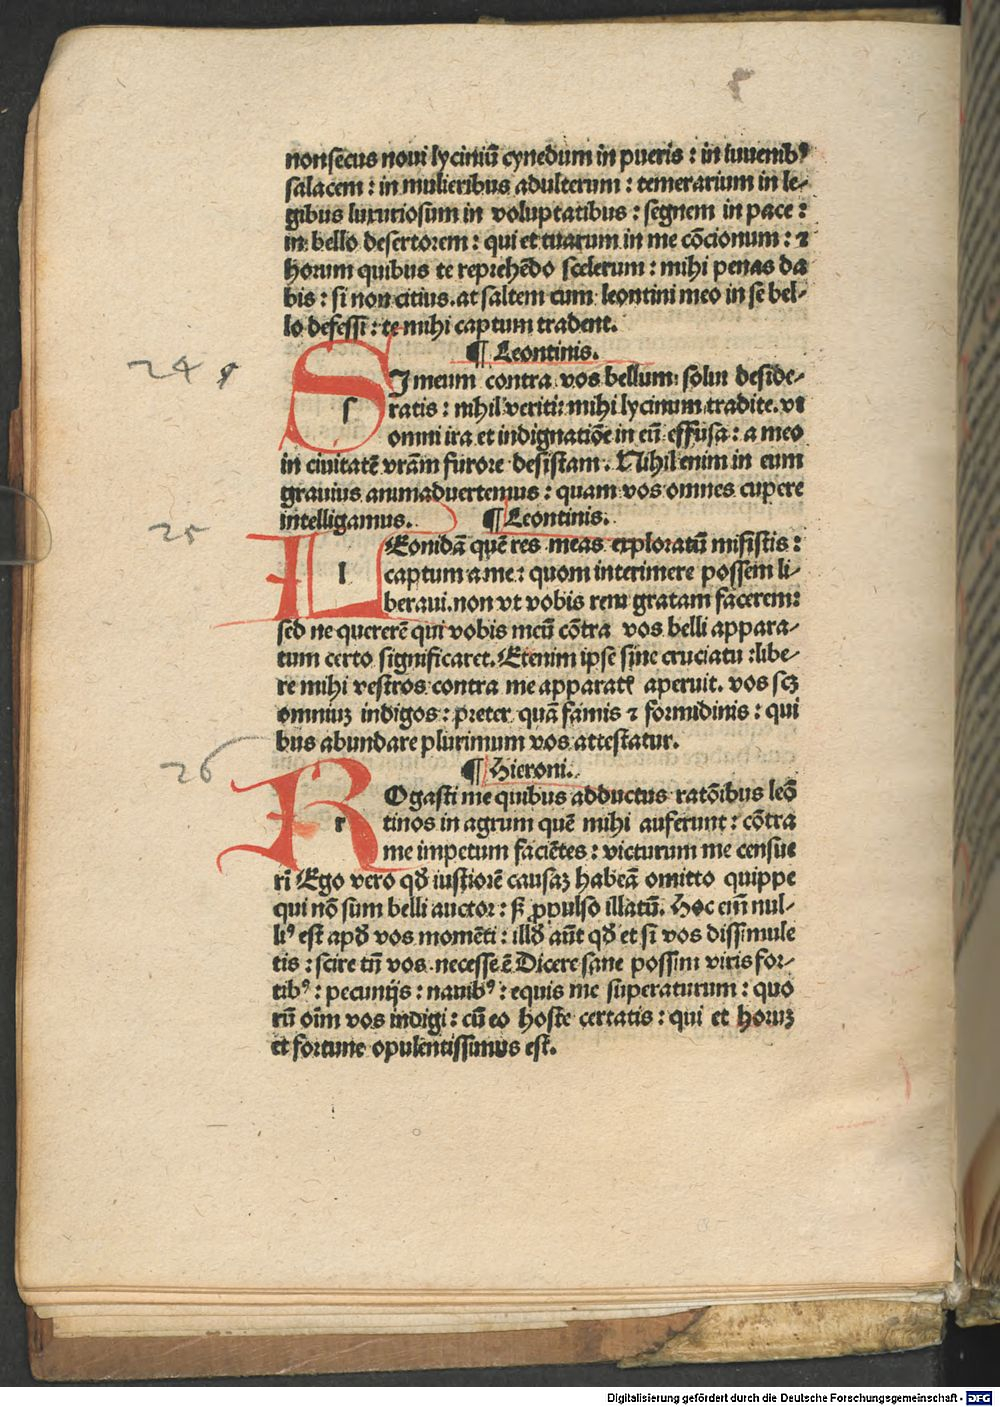 nonsecus noui lyciniū cynedum in pueris : in iuuenibꝰ
salacem : in mulieribus adulterum : temerarium in le⸗
gibus luxuriosum in voluptatibus : segnem in pace :
in bello desertorem : qui et tuarum in me cōcionum : ⁊
horum quibus te reprehēdo scelerum : mihi penas da
bis : si non citius. at saltem cum leontini meo in se bel⸗
lo defessi : te mihi captum tradent.
¶ Leontinis.
24
SI meum contra vos bellum solui deside⸗
s ratis : nihil veriti: mihi lycinum tradite. vt
omni ira et indignatiōe in eū effusa : a meo
in ciuitatē vrām furore desistam. Nihil enim in eum
grauius animaduertemus : quam vos omnes cupere
intelligamus. ¶ Leontinis.
25
LEonidā quē res meas exploratū misistis :
l captum a me : quom interimere possem li⸗
beraui. non vt vobis rem gratam facerem:
sed ne quererē qui vobis meū cōtra vos belli appara⸗
tum certo significaret. Etenim ipse sine cruciatu : libe⸗
re mihi vestros contra me apparatꝰ aperuit. vos scꝫ
omniuꝫ indigos : preter quā famis ⁊ formidinis : qui
bus abundare plurimum vos attestatur.
¶ Hieroni.
26
ROgasti me quibus adductus ratōibus leō
r tinos in agrum quē mihi auferunt : cōtra
me impetum faciētes : victurum me censue
rī Ego vero qđ iustiorē causaꝫ habeā omitto quippe
qui nō sum belli auctor : sꝫ ꝓpulso illatū. Hoc eiṁ nul⸗
liꝰ est apđ vos momēti : illđ aūt qđ et si vos dissimule
tis : scire tn̄ vos necesse ē Dicere sane possim viris for⸗
tibꝰ : pecunijs : nauibꝰ : equis me superaturum : quo
rū oīm vos indigi : cū eo hoste certatis : qui et horuꝫ
et fortune opulentissimus est.
Digitalisierung gefördert durch die Deutsche Forschungsgemeinschaft - DFG